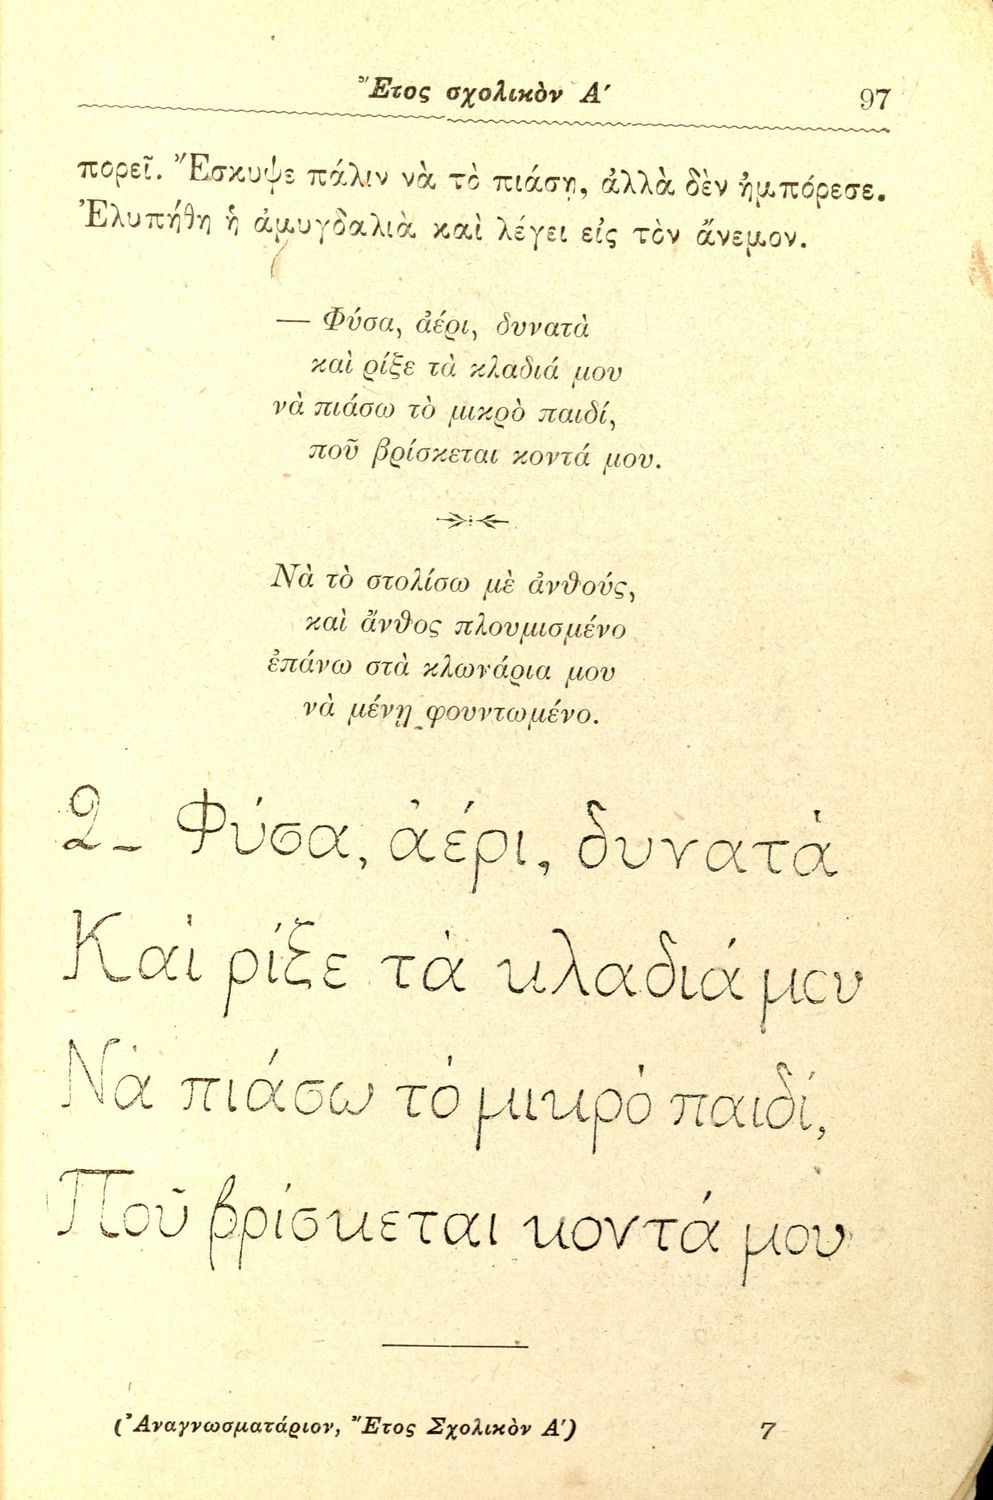 Ἔτος σχολικὸν Α΄ 97
πορεῖ. Ἔσκυψε πάλιν νὰ τὸ πιάσῃ, ἀλλὰ δὲν ἠμπόρεσε.
Ἐλυπήθη ἡ ἀμυγδαλιὰ καὶ λέγει εἰς τὸν ἄνεμον.
— Φύσα, ἀέρι, δυνατὰ
καὶ ρίξε τὰ κλαδιά μου
νὰ πιάσω τὸ μικρὸ παιδί,
ποῦ βρίσκεται κοντά μου.
Νὰ τὸ στολίσω μὲ ἀνθούς,
καὶ ἄνθος πλουμισμένο
ἐπάνω στὰ κλωνάρια μου
νὰ μένῃ φουντωμένο.
2– Φύσα, ἀέρι, δυνατὰ
Καὶ ρίξε τὰ κλαδιά μου
Νὰ πιάσω τὸ μικρὸ παιδί,
Ποῦ βρίσκεται κοντά μου
(Ἀναγνωσματάριον, Ἔτος Σχολικὸν Α΄) 7